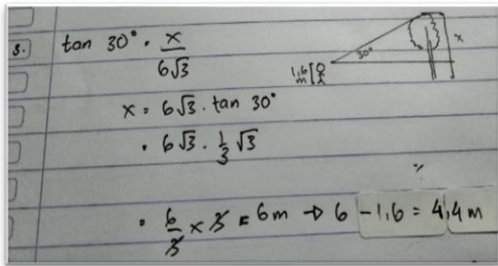 3. tan 30° = x / 6√3
30°
x
1,6 m
x = 6√3 . tan 30°
= 6√3 . 1/3 √3
= 6/3 × 3 = 6 m → 6 - 1,6 = 4,4 m